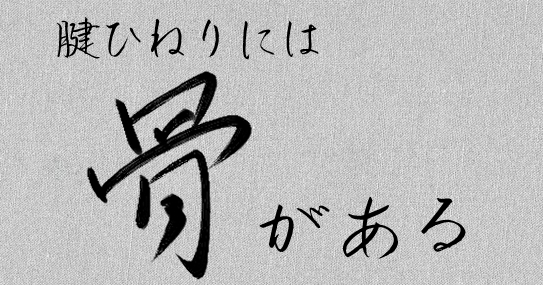 腱ひねりには
骨がある